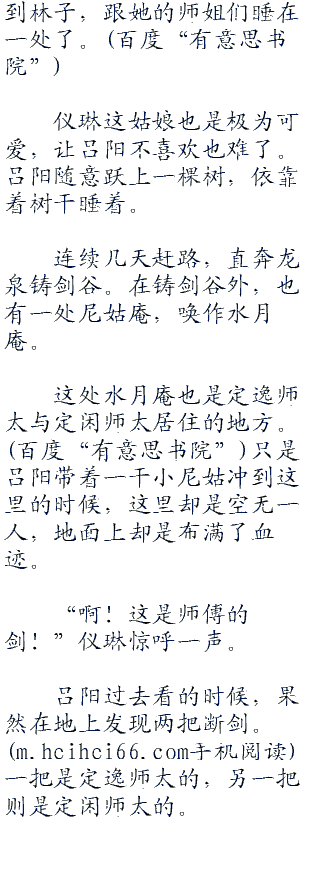 到林子，跟她的师姐们睡在
一处了。(百度“有意思书
院”)
仪琳这姑娘也是极为可
爱，让吕阳不喜欢也难了。
吕阳随意跃上一棵树，依靠
着树干睡着。
连续几天赶路，直奔龙
泉铸剑谷。在铸剑谷外，也
有一处尼姑庵，唤作水月
庵。
这处水月庵也是定逸师
太与定闲师太居住的地方。
(百度“有意思书院”)只是
吕阳带着一干小尼姑冲到这
里的时候，这里却是空无一
人，地面上却是布满了血
迹。
“啊！这是师傅的
剑！”仪琳惊呼一声。
吕阳过去看的时候，果
然在地上发现两把断剑。
(m.hcihci66.com手机阅读)
一把是定逸师太的，另一把
则是定闲师太的。